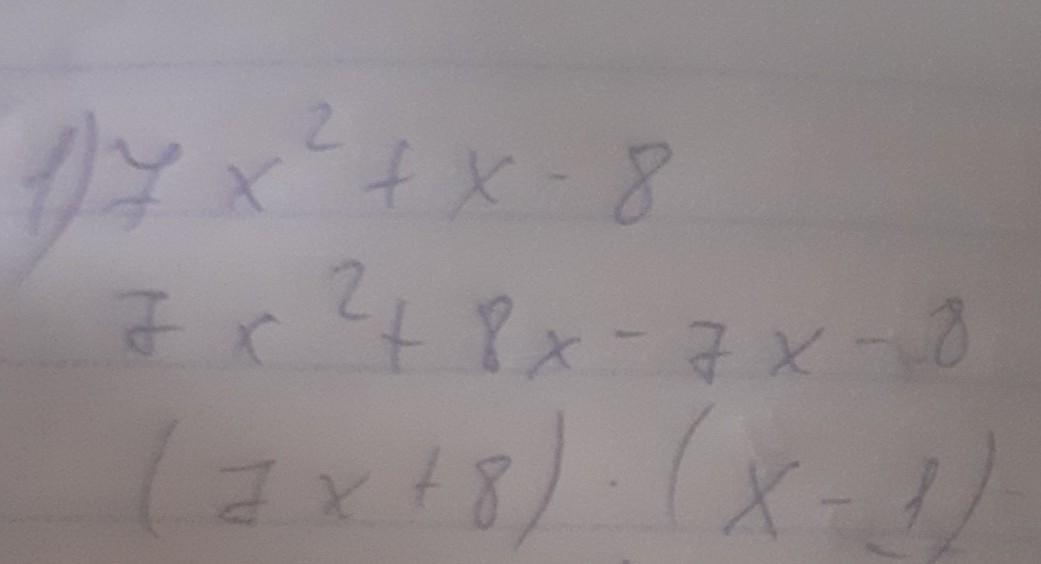 1) 7x² + x - 8
7x² + 8x - 7x - 8
(7x + 8) · (x - 1)